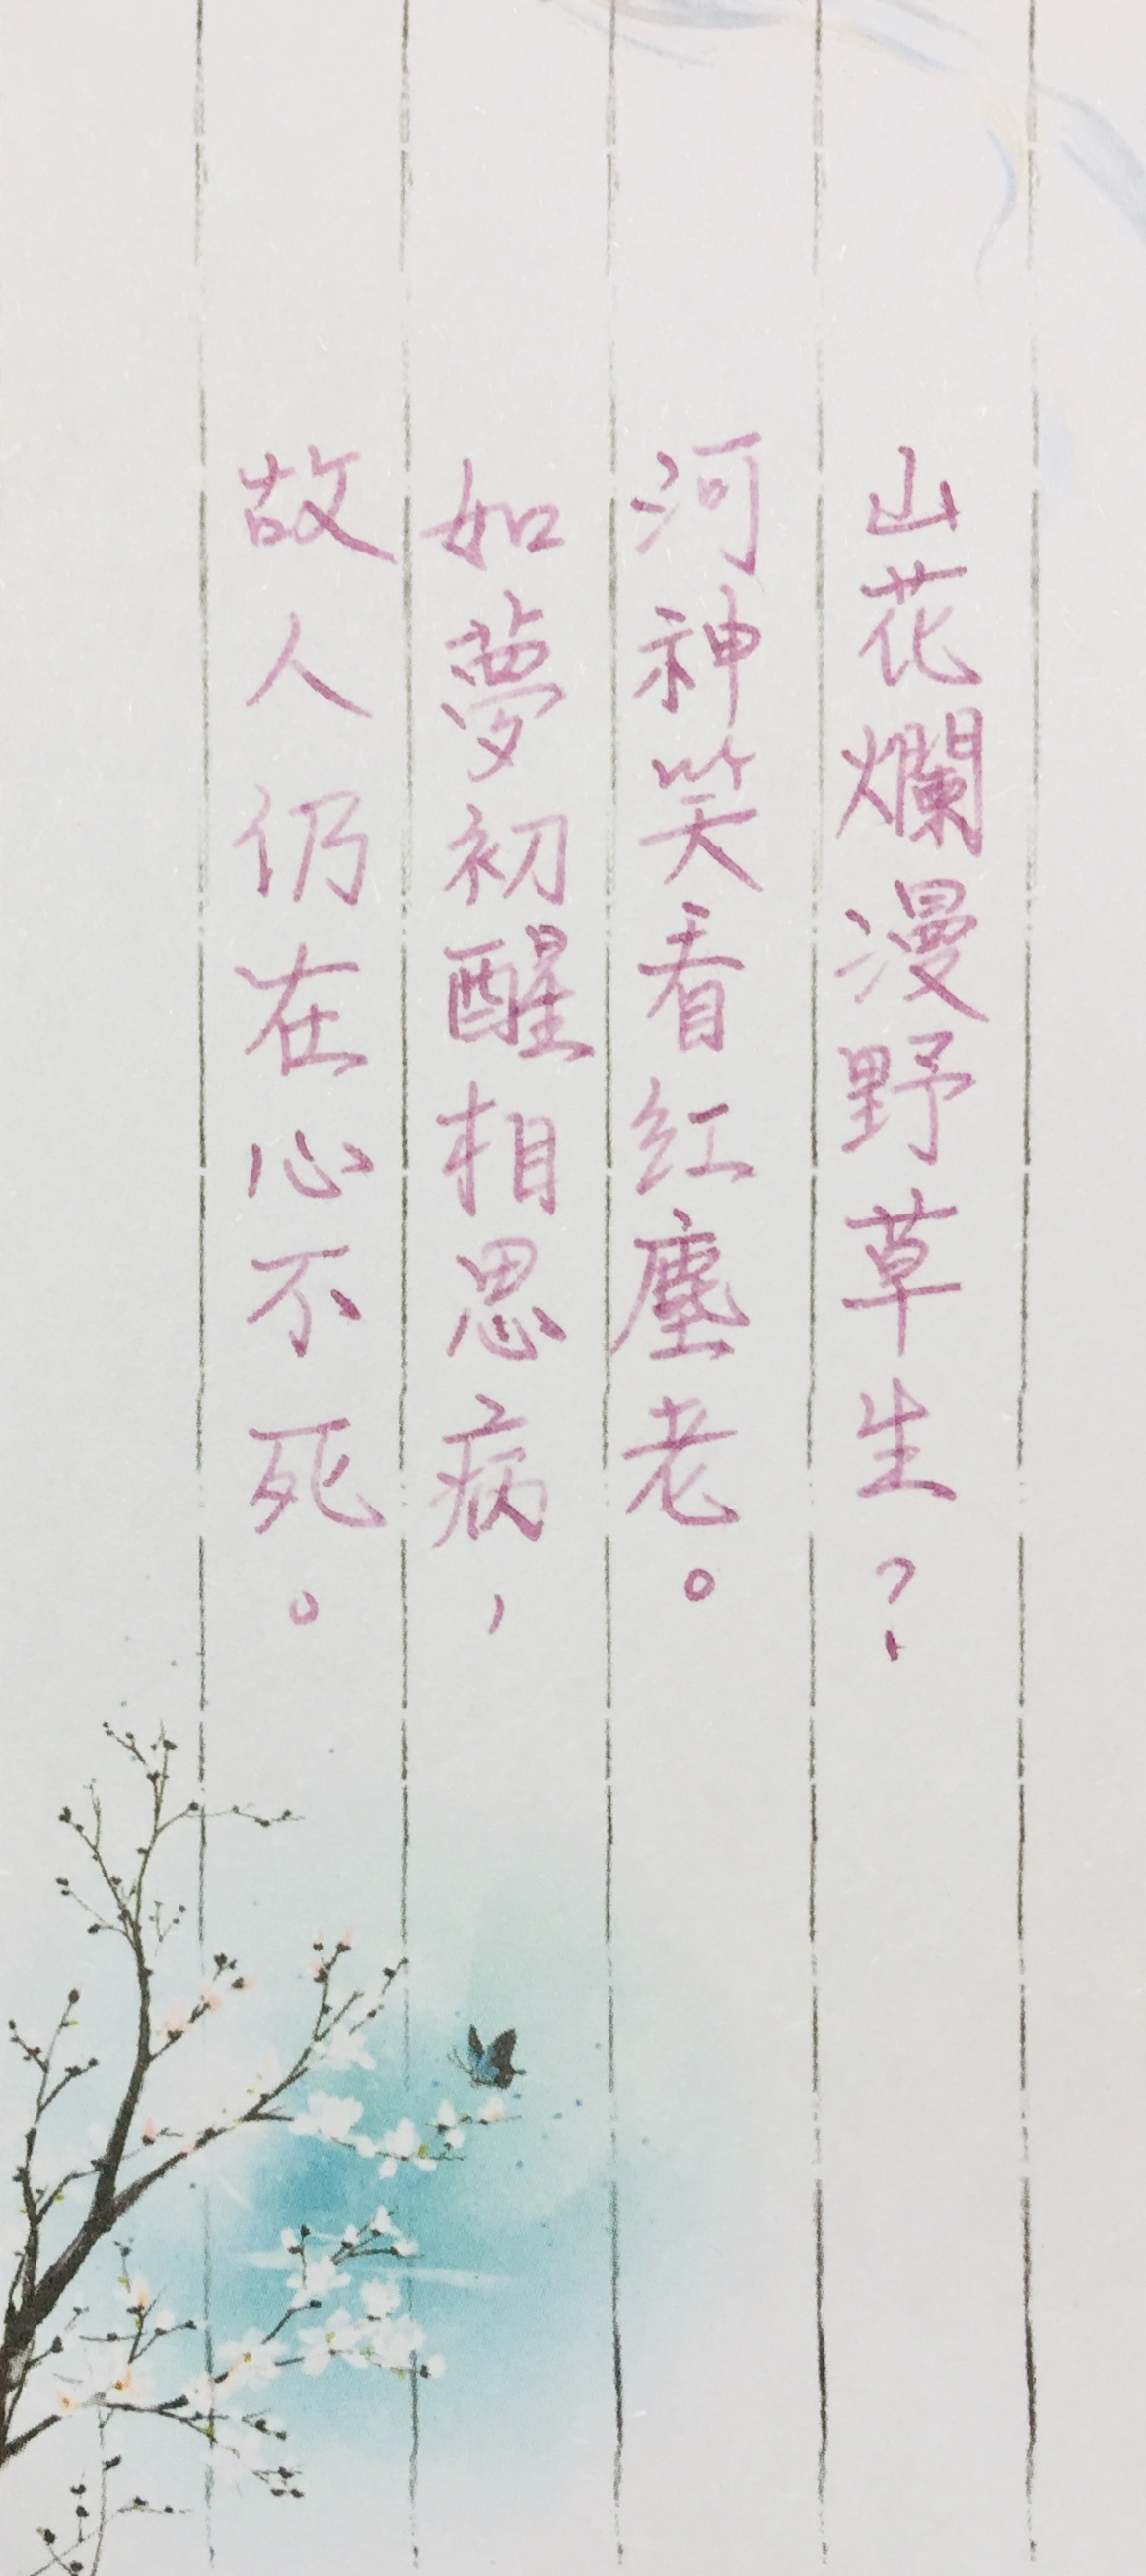 山花爛漫野草生？
河神笑看紅塵老。
如夢初醒相思病，
故人仍在心不死。